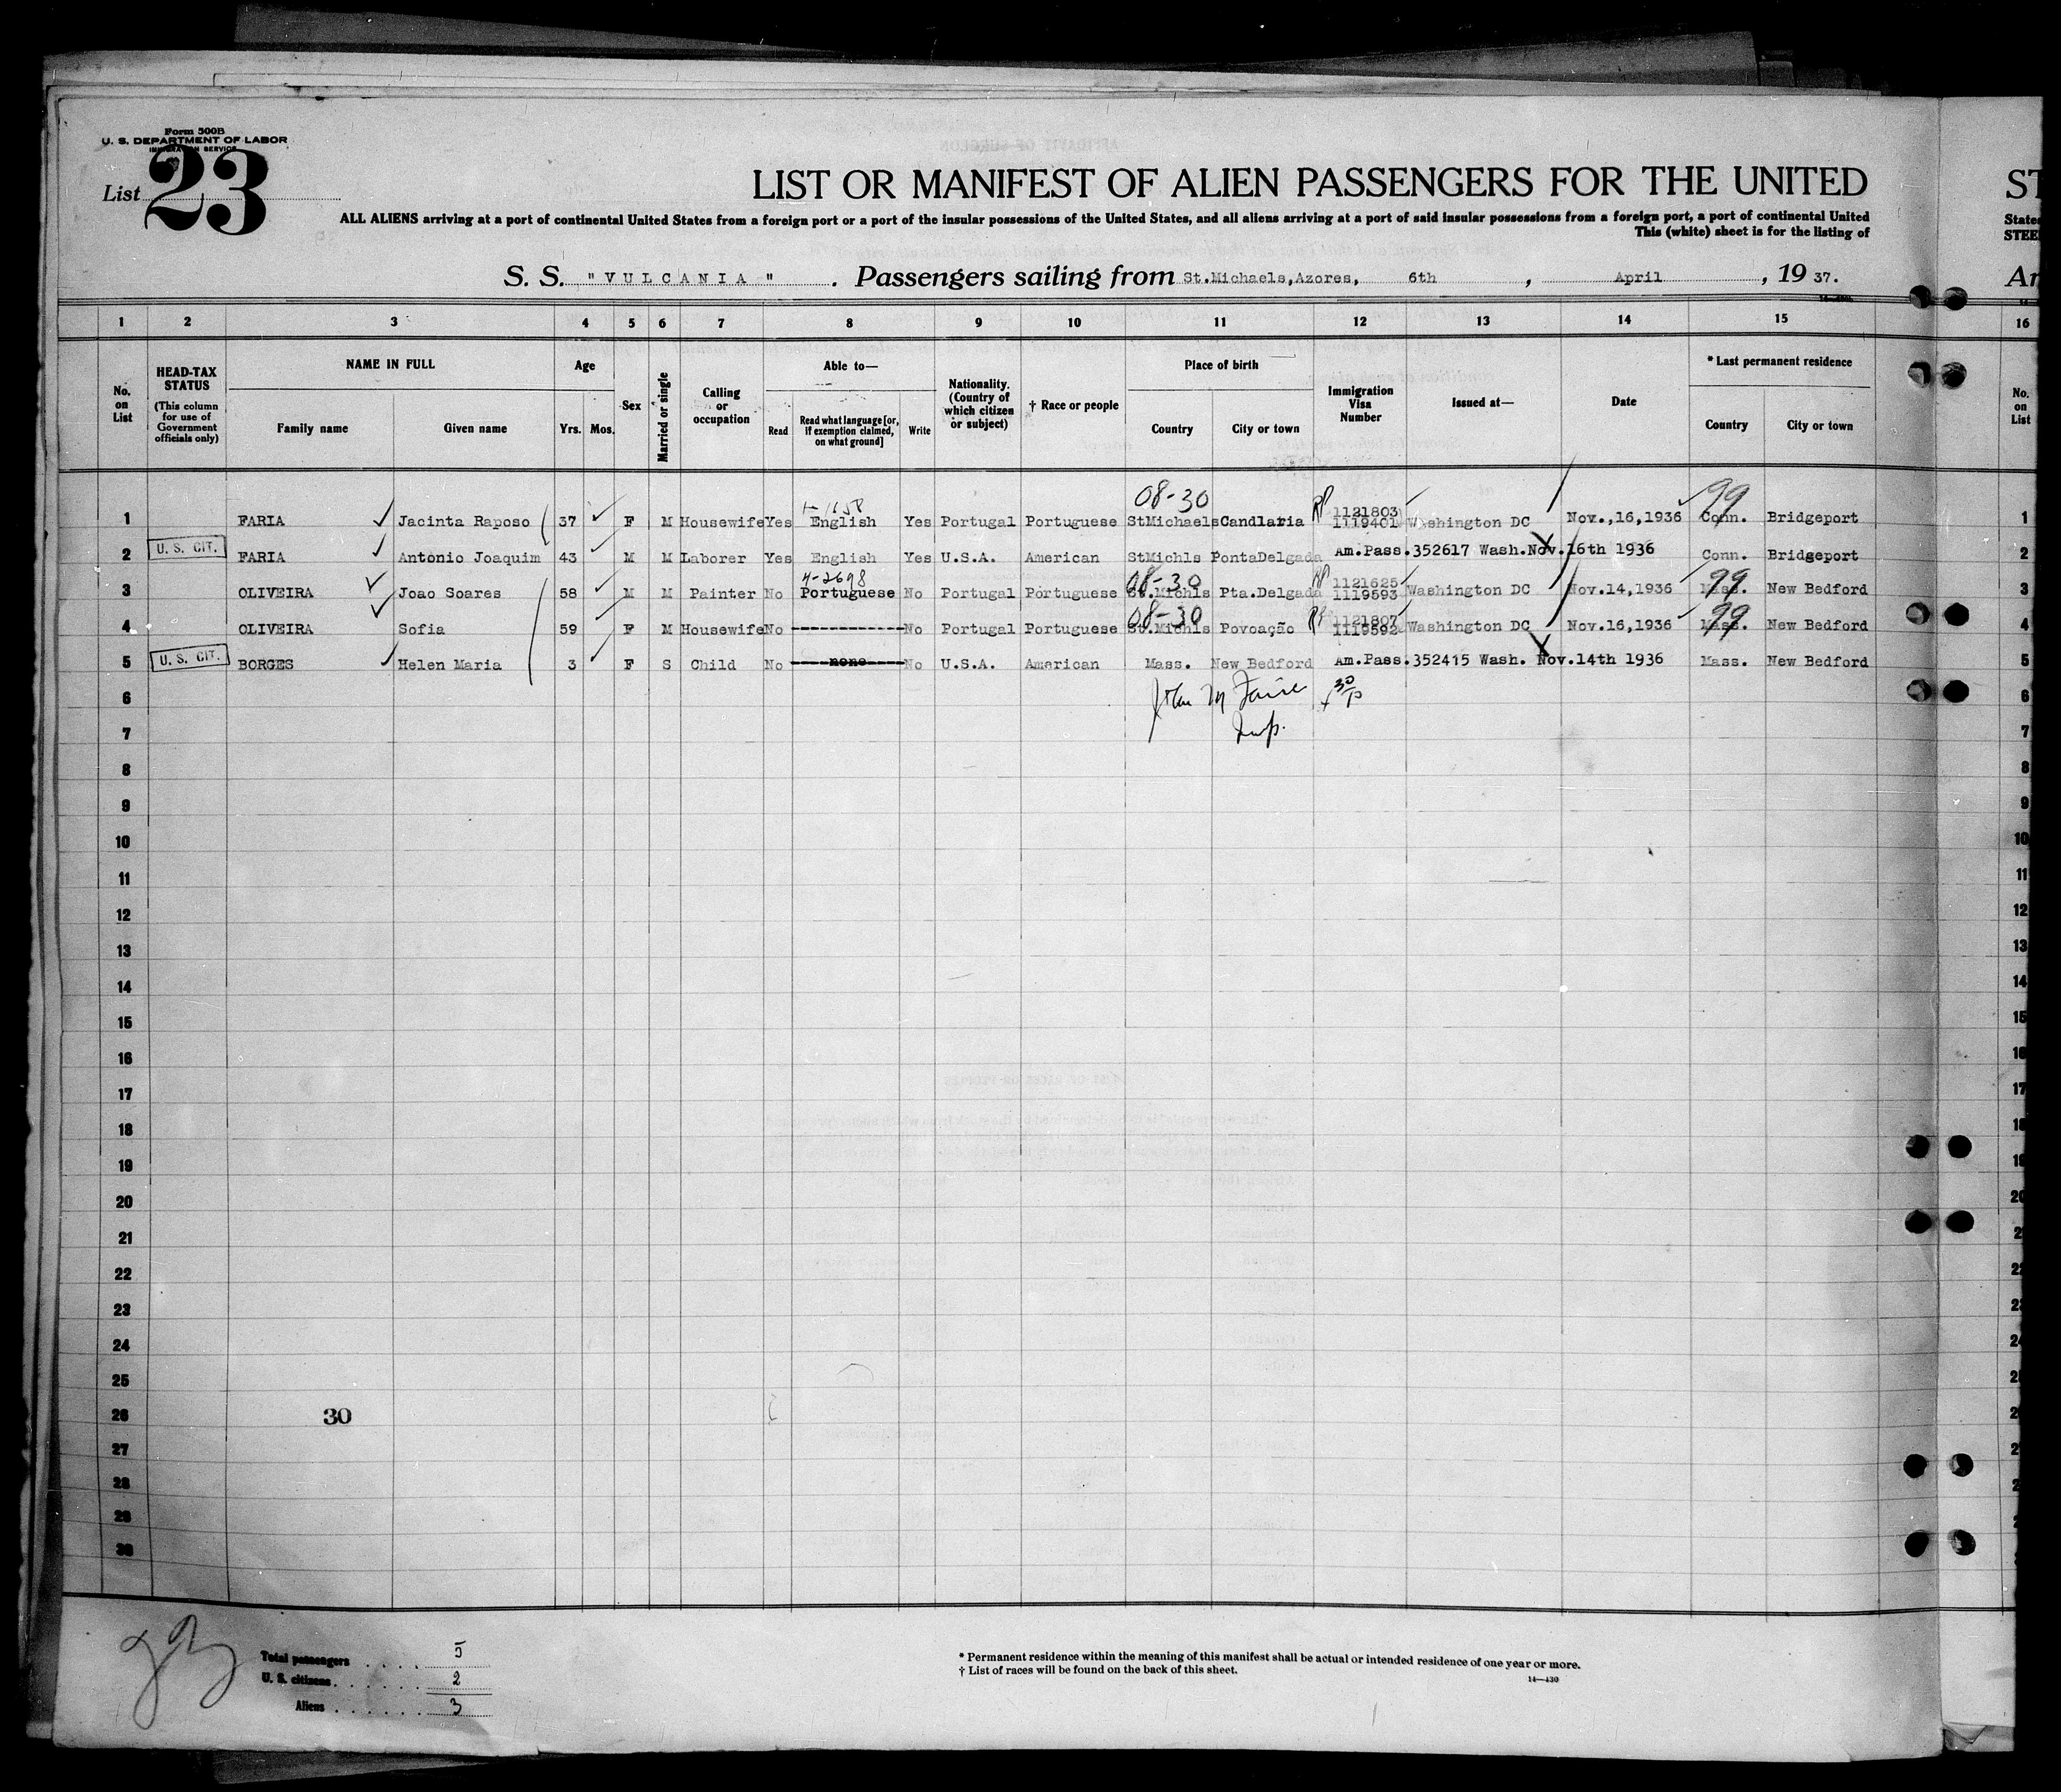 Form 500B
U. S. DEPARTMENT OF LABOR
IMMIGRATION SERVICE
List 23
LIST OR MANIFEST OF ALIEN PASSENGERS FOR THE UNITED
ST
ALL ALIENS arriving at a port of continental United States from a foreign port or a port of the insular possessions of the United States, and all aliens arriving at a port of said insular possessions from a foreign port, a port of continental United
State
This (white) sheet is for the listing of
STEE
S. S. " V U L C A N I A " . Passengers sailing from St.Michaels,Azores, 6th , April , 19 37.
Ar
1 2 3 4 5 6 7 8 9 10 11 12 13 14 15 16
No. on List
HEAD-TAX STATUS
(This column for use of Government officials only)
NAME IN FULL
Family name
Given name
Age
Yrs. Mos.
Sex
Married or single
Calling or occupation
Able to—
Read
Read what language [or, if exemption claimed, on what ground]
Write
Nationality. (Country of which citizen or subject)
† Race or people
Place of birth
Country
City or town
Immigration Visa Number
Issued at—
Date
* Last permanent residence
Country
City or town
No. on List
08-30 99
1 FARIA Jacinta Raposo 37 F M Housewife Yes English Yes Portugal Portuguese StMichaels Candlaria 1121803 1119401 Washington DC Nov.,16,1936 Conn. Bridgeport 1
2 U. S. CIT. FARIA Antonio Joaquim 43 M M Laborer Yes English Yes U.S.A. American StMichls PontaDelgada Am.Pass.352617 Wash.Nov.16th 1936 Conn. Bridgeport 2
4-2698 08-30 99
3 OLIVEIRA Joao Soares 58 M M Painter No Portuguese No Portugal Portuguese St.Michls Pta.Delgada 1121625 1119593 Washington DC Nov.14,1936 Mass. New Bedford 3
08-30 99
4 OLIVEIRA Sofia 59 F M Housewife No ------------ No Portugal Portuguese St.Michls Povoação 1121807 1119592 Washington DC Nov.16,1936 Mass. New Bedford 4
5 U. S. CIT. BORGES Helen Maria 3 F S Child No ----none---- No U.S.A. American Mass. New Bedford Am.Pass.352415 Wash. Nov.14th 1936 Mass. New Bedford 5
6 John M 6
7 Insp. 7
8 8
9 9
10 10
11 11
12 12
13 13
14 14
15 15
16 16
17 17
18 18
19 19
20 20
21 2
22 22
23 23
24 24
25 25
26 30 2
27 2
28 2
29 2
30
Total passengers . . . . 5
U. S. citizens . . . . . . 2
Aliens . . . . . . 3
* Permanent residence within the meaning of this manifest shall be actual or intended residence of one year or more.
† List of races will be found on the back of this sheet.
14—430